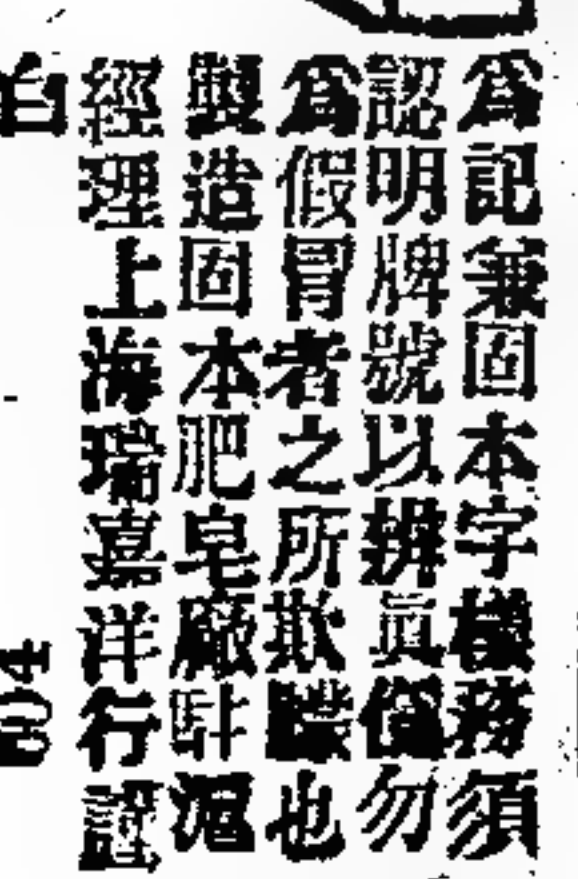 爲記兼固本字樣務須
認明牌號以辨眞僞勿
爲假冒者之所欺朦也
製造固本肥皂廠駐滬
經理上海瑞嘉洋行謹
白
604